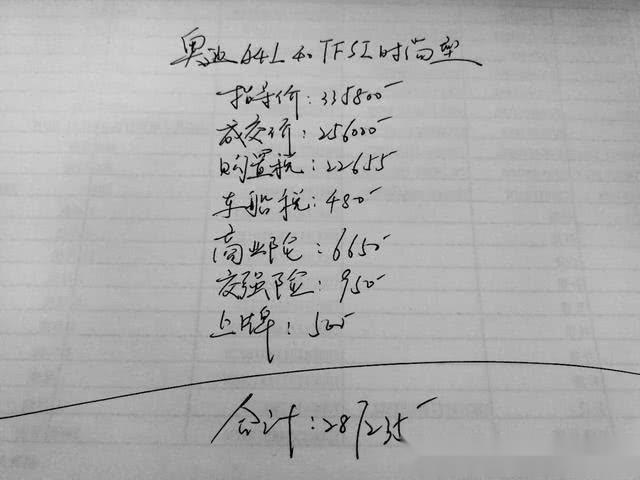 奥迪A4L 40 TFSI 时尚型
指导价:335800
成交价:256000
购置税:22655
车船税:480
商业险:6650
交强险:950
上牌:500
合计:287235